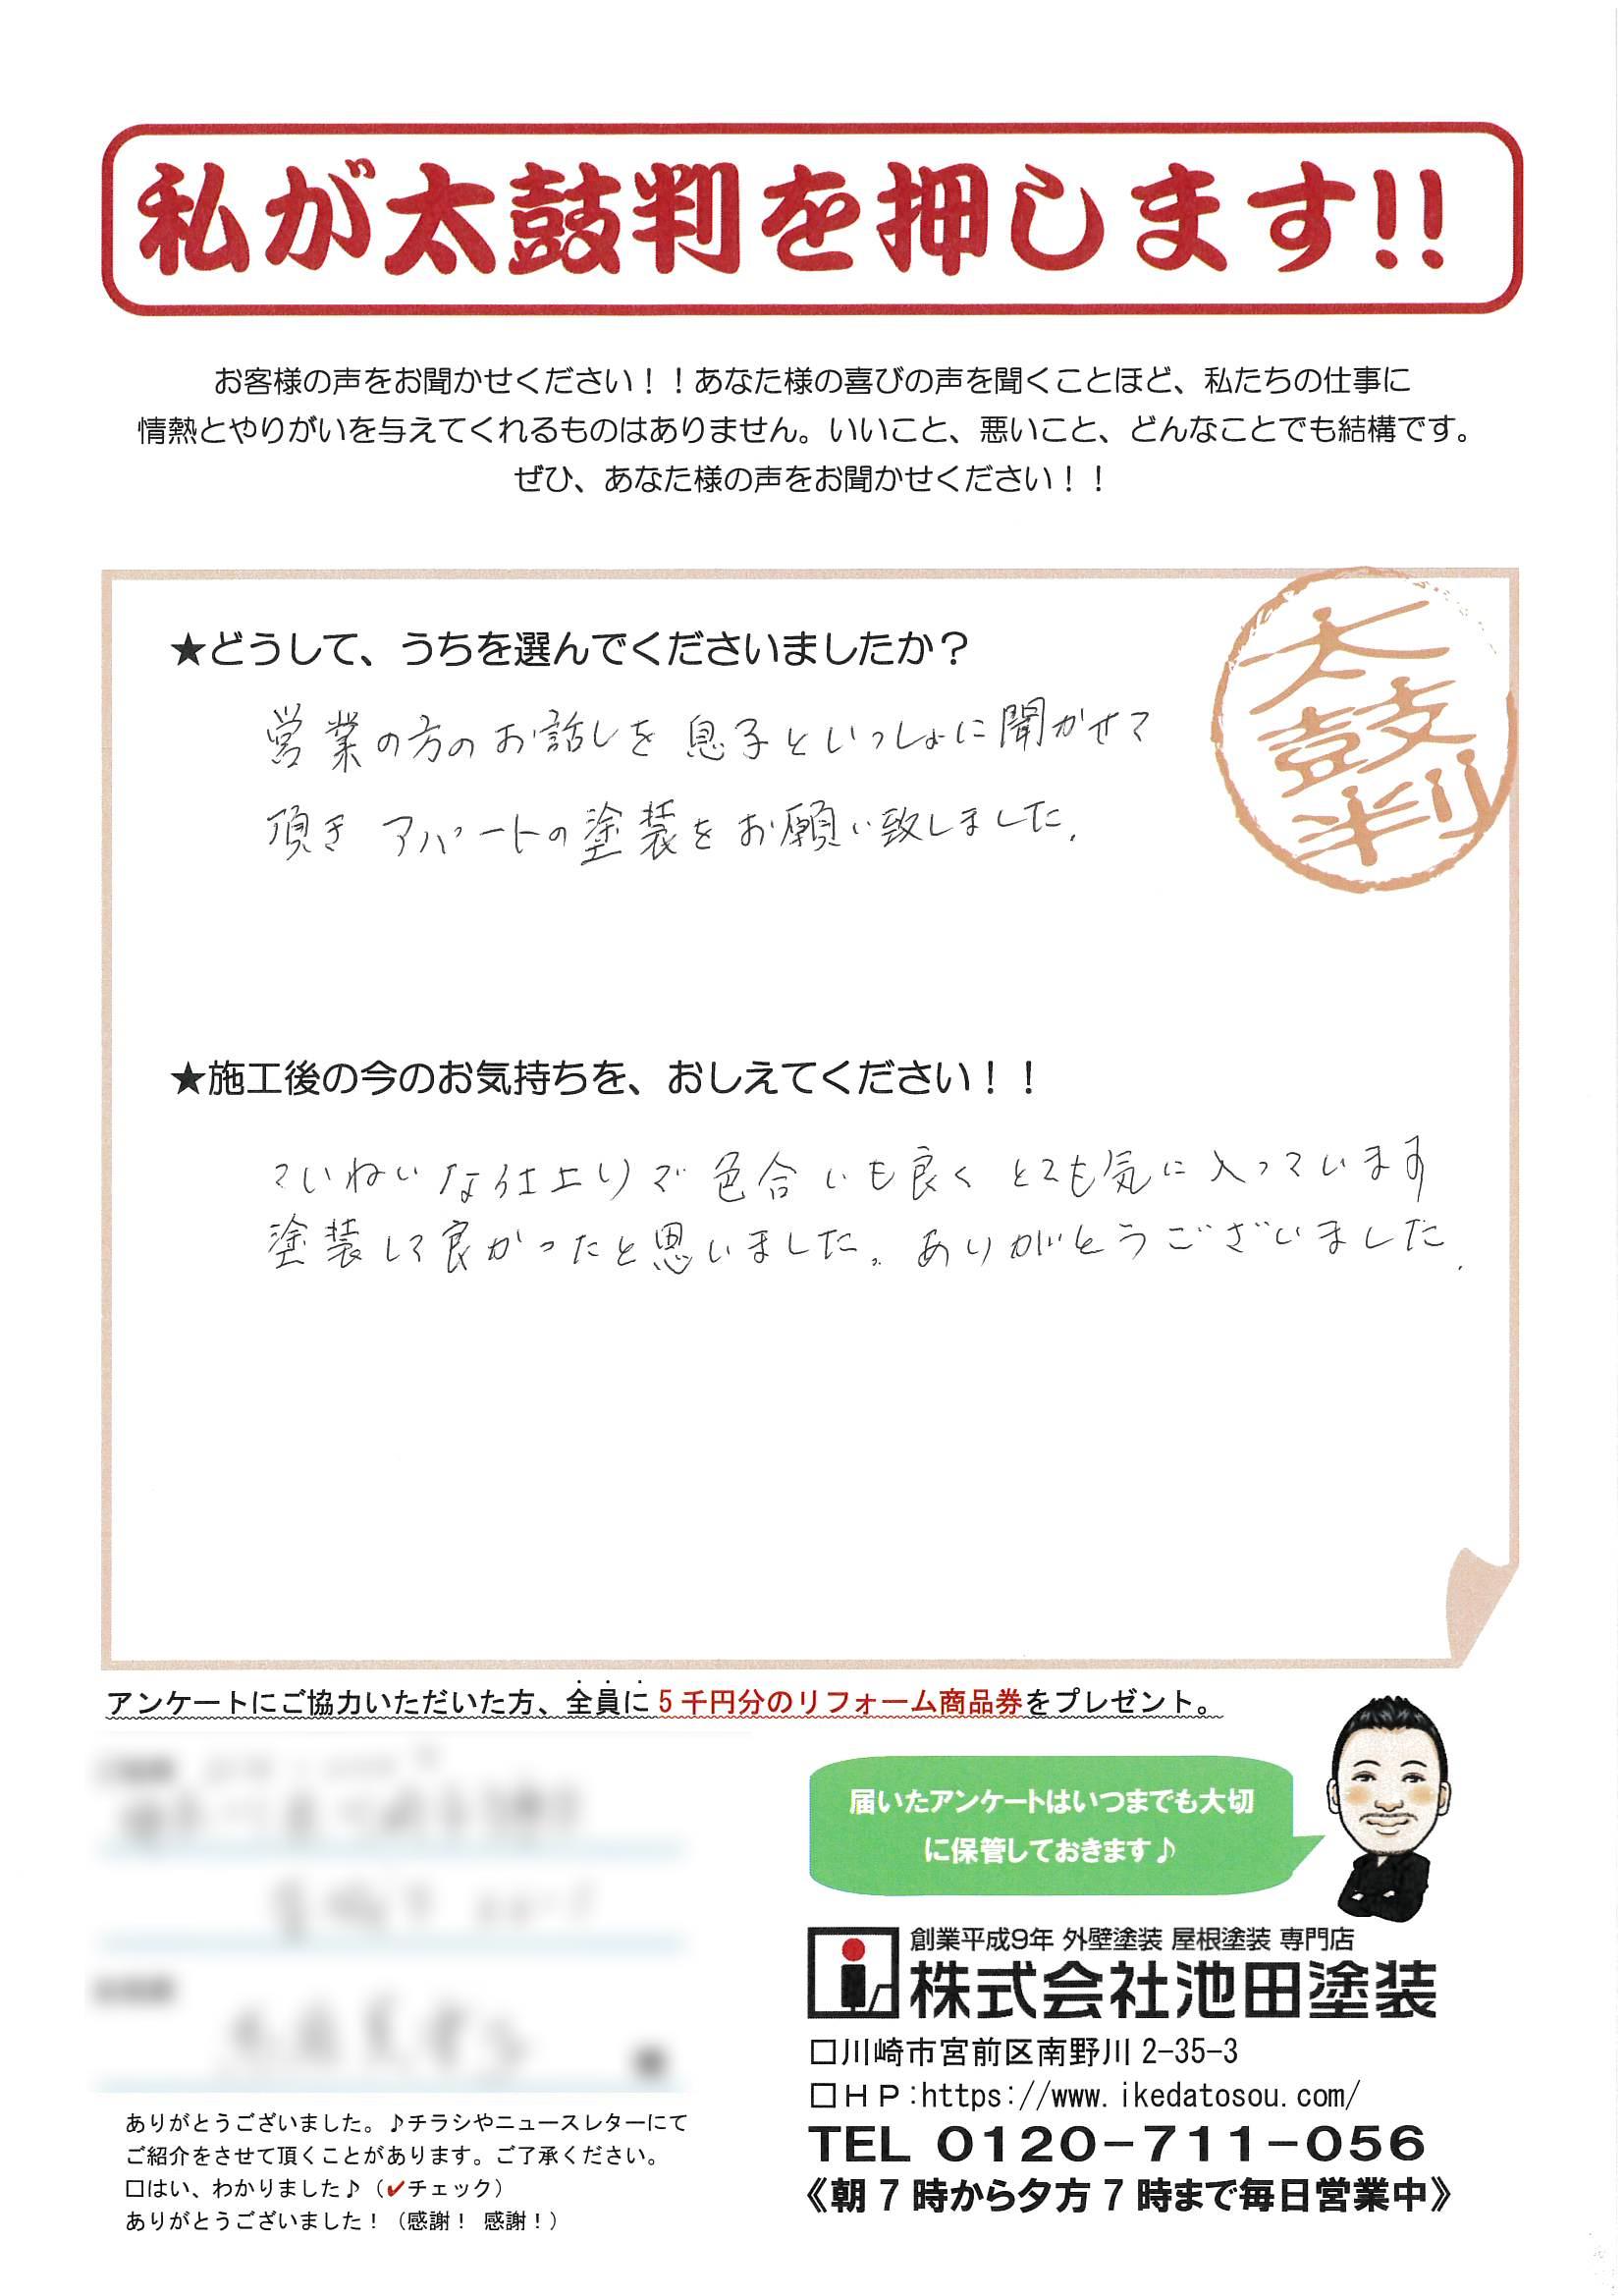 私が太鼓判を押します!!
お客様の声をお聞かせください！！あなた様の喜びの声を聞くことほど、私たちの仕事に
情熱とやりがいを与えてくれるものはありません。いいこと、悪いこと、どんなことでも結構です。
ぜひ、あなた様の声をお聞かせください！！
太鼓判
★どうして、うちを選んでくださいましたか？
営業の方のお話しを息子といっしょに聞かせて
頂き アパートの塗装をお願い致しました.
★施工後の今のお気持ちを、おしえてください！！
ていねいな仕上りで色合いも良くとても気に入っています
塗装して良かったと思いました。ありがとうございました.
アンケートにご協力いただいた方、全員に5千円分のリフォーム商品券をプレゼント。
届いたアンケートはいつまでも大切
に保管しておきます♪
創業平成9年 外壁塗装 屋根塗装 専門店
株式会社池田塗装
□川崎市宮前区南野川2-35-3
□ＨＰ:https://www.ikedatosou.com/
TEL 0120-711-056
《朝7時から夕方7時まで毎日営業中》
ありがとうございました。♪チラシやニュースレターにて
ご紹介をさせて頂くことがあります。ご了承ください。
□はい、わかりました♪（✔チェック）
ありがとうございました！（感謝！ 感謝！）